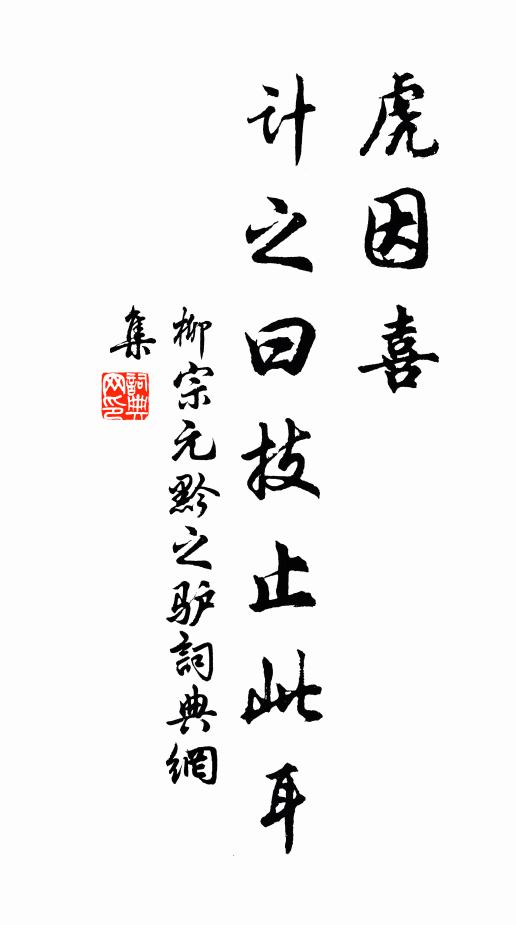 虎因喜
计之曰技止此耳
柳宗元黔之驴詞典網
集
詞典网印